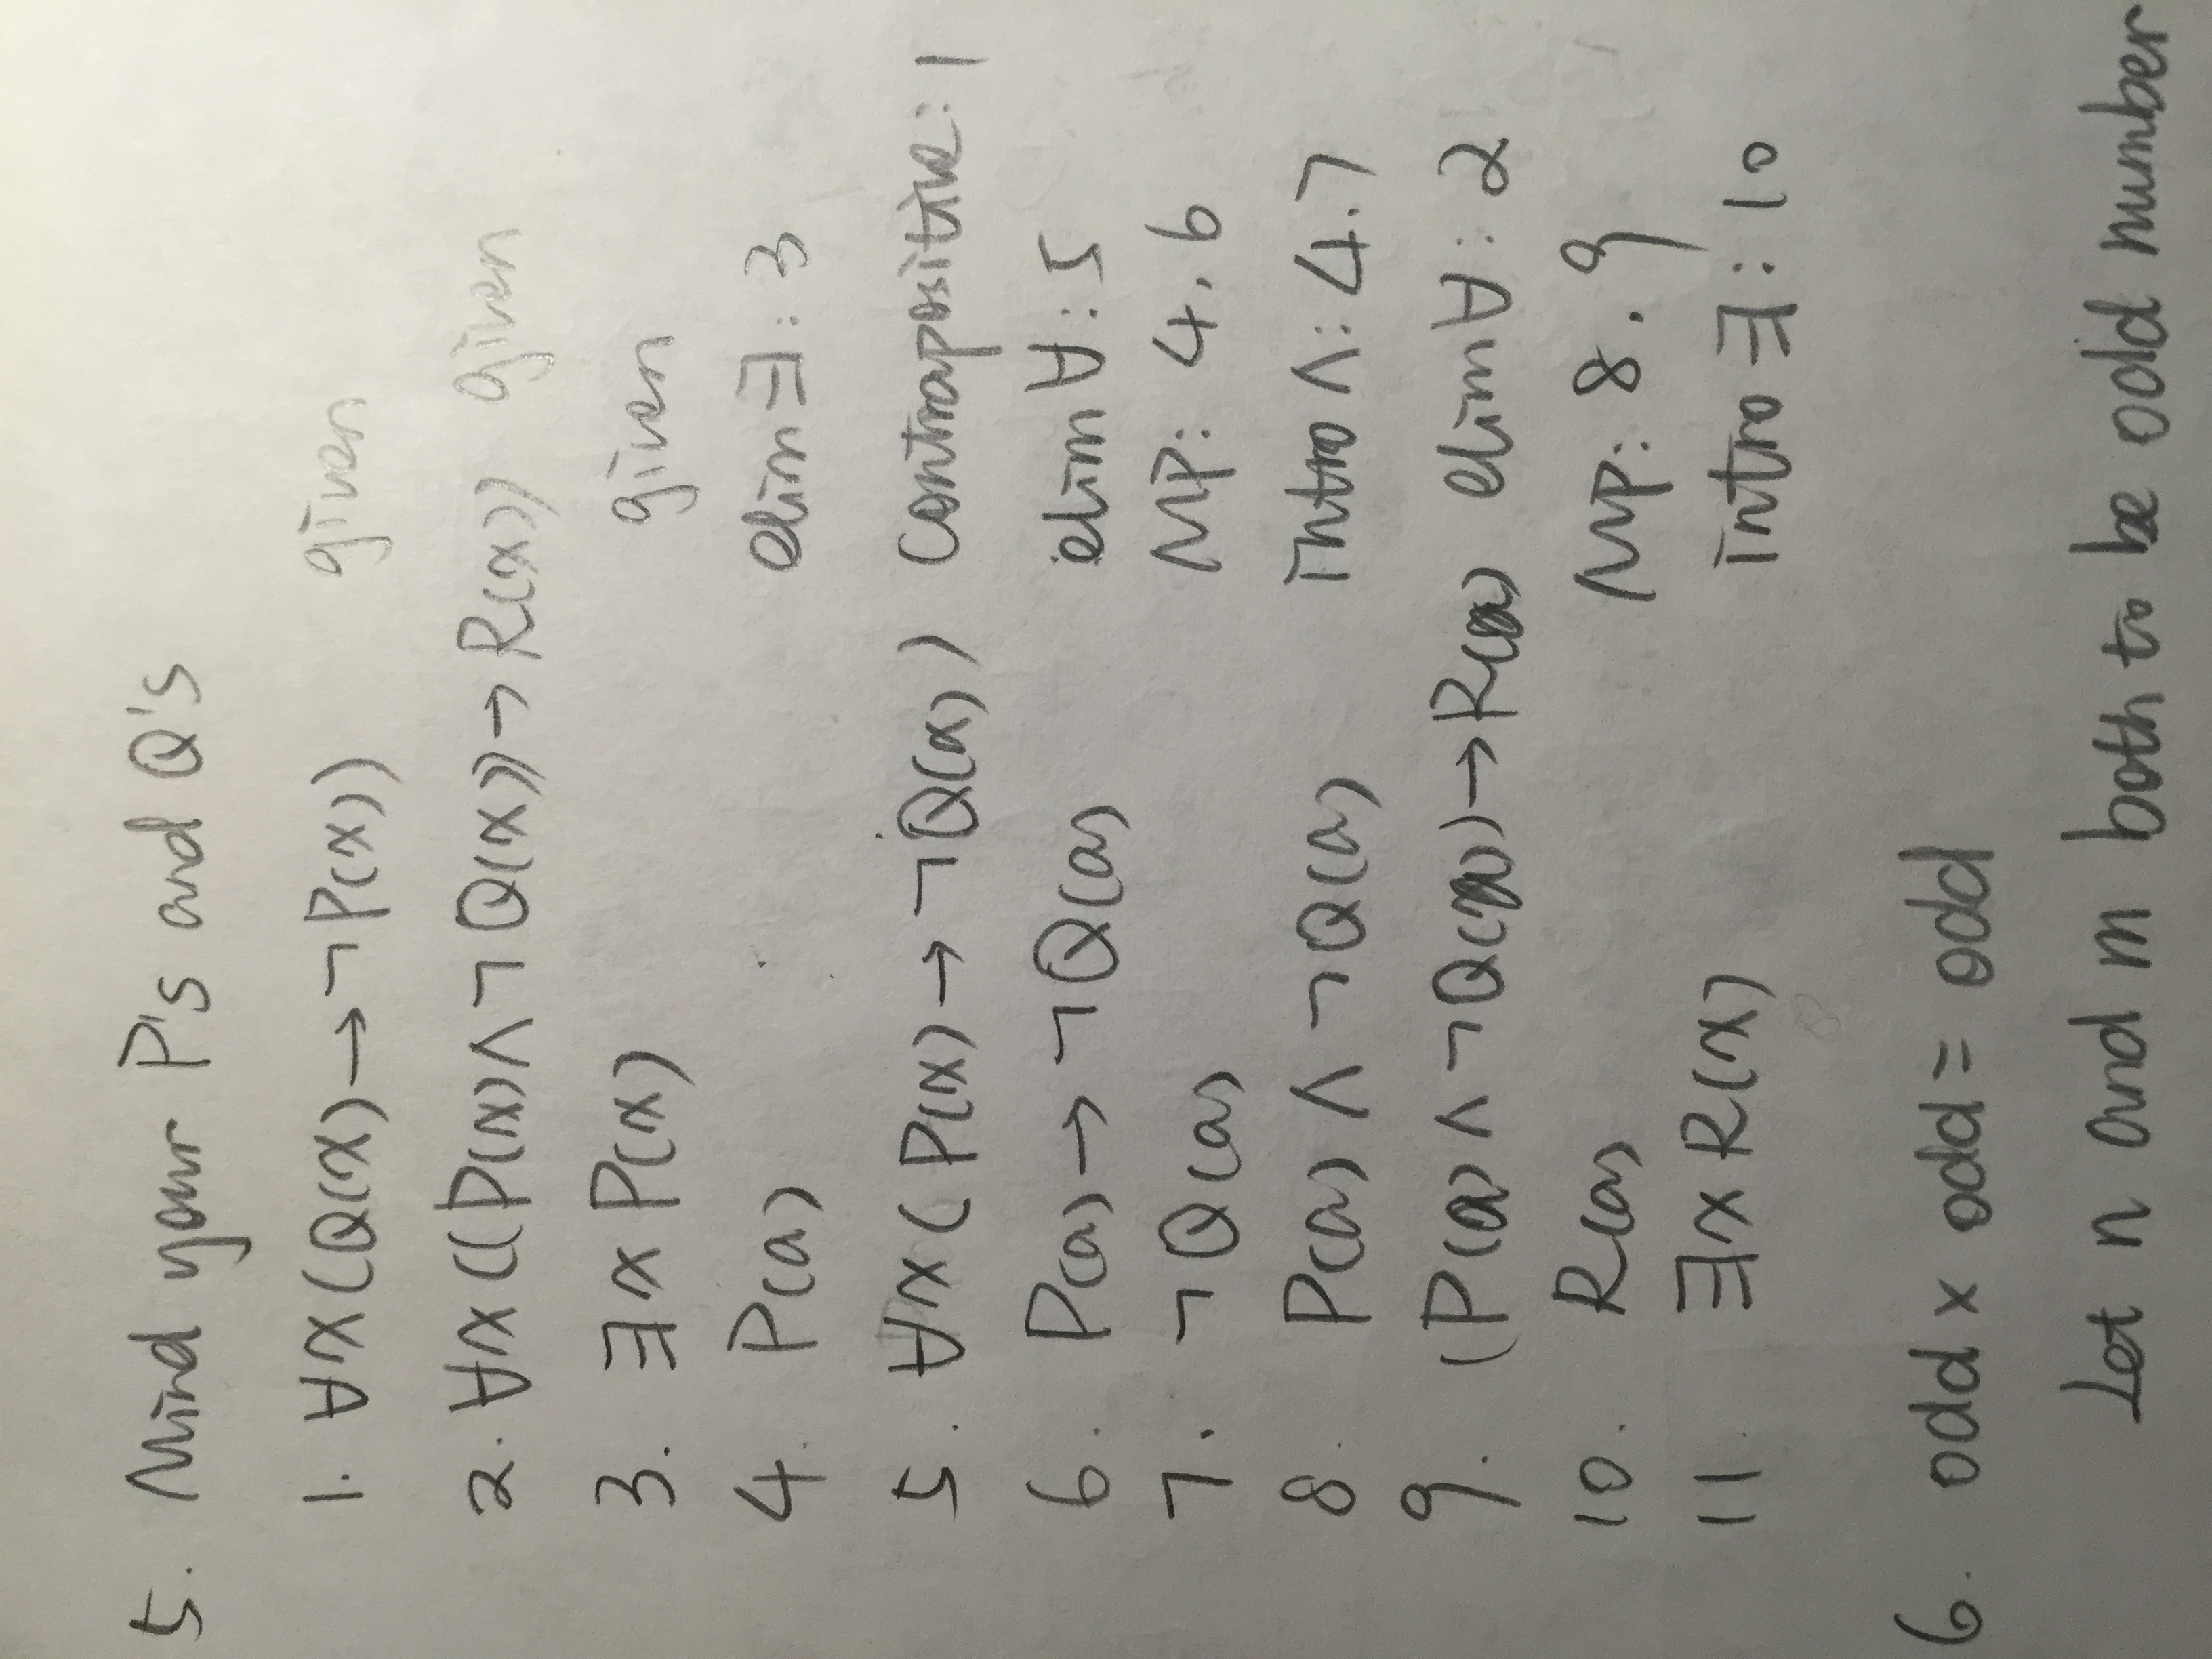 5. Mind your P's and Q's
1. ∀x(Q(x)→¬P(x)) given
2. ∀x((P(x)∧¬Q(x))→R(x)) given
3. ∃x P(x) given
4. P(a) elim∃: 3
5. ∀x(P(x)→¬Q(x)) Contrapositive: 1
6. P(a)→¬Q(a) elim∀: 5
7. ¬Q(a) MP: 4.6
8. P(a)∧¬Q(a) intro∧: 4.7
9. (P(a)∧¬Q(a))→R(a) elim∀: 2
10. R(a) MP: 8.9
11. ∃x R(x) intro∃: 10
6. odd x odd = odd
Let n and m both to be odd number